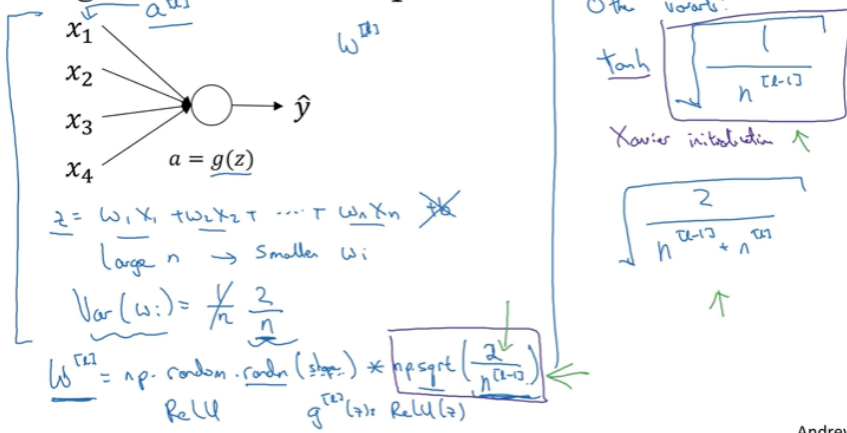 a^[l]
x₁
x₂
x₃
x₄
ŷ
a = g(z)
w^[l]
z = w₁x₁ + w₂x₂ + ····· + wₙxₙ +b
Large n → Smaller wᵢ
Var(wᵢ) = 1/n 2/n
W^[l] = np.random.randn(shape) * np.sqrt(2/n^[l-1])
ReLU g^[l](z) = ReLU(z)
Other variants:
tanh √(1/n^[l-1])
Xavier initialization ↑
√(2/(n^[l-1] + n^[l]))
↑
Andrew